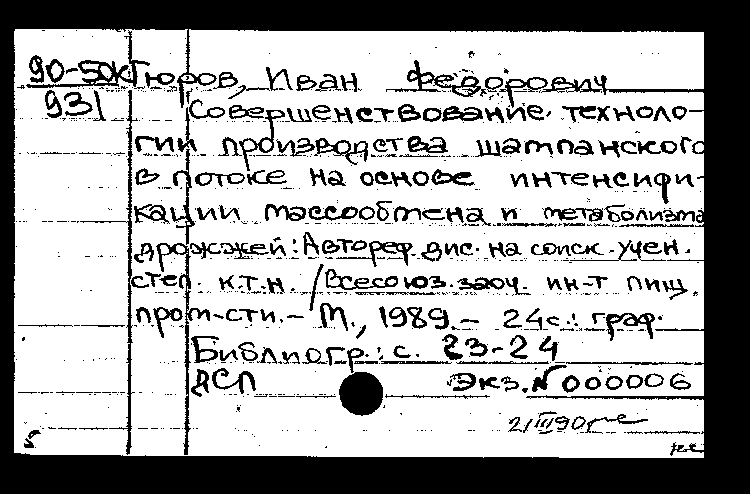 90-50к Тюров, Иван Федорович
931 Совершенствование техноло-
гии производства шампанского
в потоке на основе интенсифи-
кации массообмена и метаболизма
дрожжей: Автореф. дис. на соиск. учен.
степ. к.т.н. / Всесоюз. заоч. ин-т пищ.
пром-сти. - М., 1989. - 24с.: граф.
Библиогр.: с. 23-24
ДСП Экз. № 000006
21/III90
5